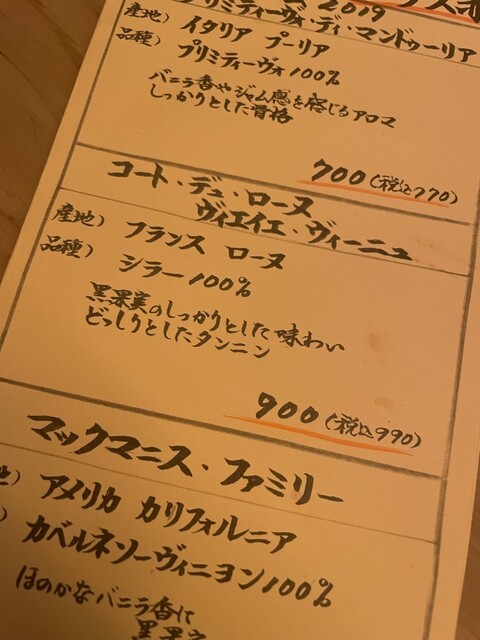 2019
プリミティーヴォ・ディ・マンドゥーリア
産地) イタリア プーリア
品種) プリミティーヴォ100%
バニラ香やジャム感を感じるアロマ
しっかりとした骨格
700(税込770)
コート・デュ・ローヌ
ヴィエイエ・ヴィーニュ
産地) フランス ローヌ
品種) シラー100%
黒果実のしっかりとした味わい
どっしりとしたタンニン
900(税込990)
マックマニス・ファミリー
地) アメリカ カリフォルニア
) カベルネソーヴィニヨン100%
ほのかなバニラ香に
黒果実